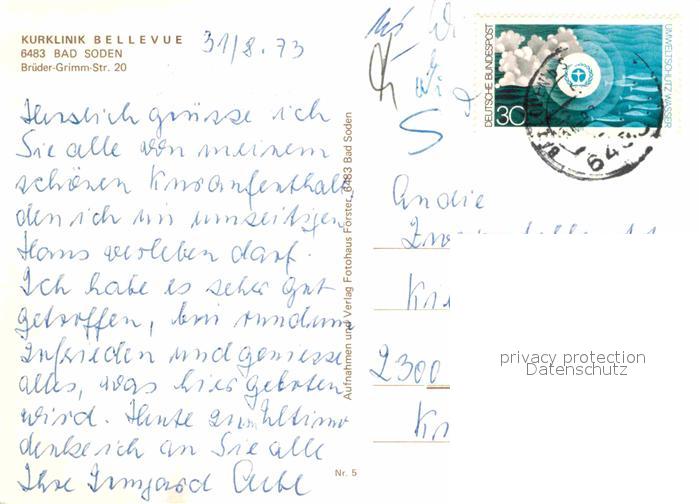 KURKLINIK BELLEVUE
6483 BAD SODEN
Brüder-Grimm-Str. 20
31/8.73
Herzlich grüsse ich
Sie alle von meinem
schönen Kuraufenthalt,
den ich im umseitigen
Haus verleben darf.
Ich habe es sehr gut
getroffen, bin rundum
zufrieden und geniesse
alles, was hier geboten
wird. Heute zum Ultimo
denke ich an Sie alle
Ihre Irmgard
Aufnahmen und Verlag Fotohaus Förster, 6483 Bad Soden
Nr. 5
DEUTSCHE BUNDESPOST
30
UMWELTSCHUTZ WASSER
An die
2300
privacy protection
Datenschutz